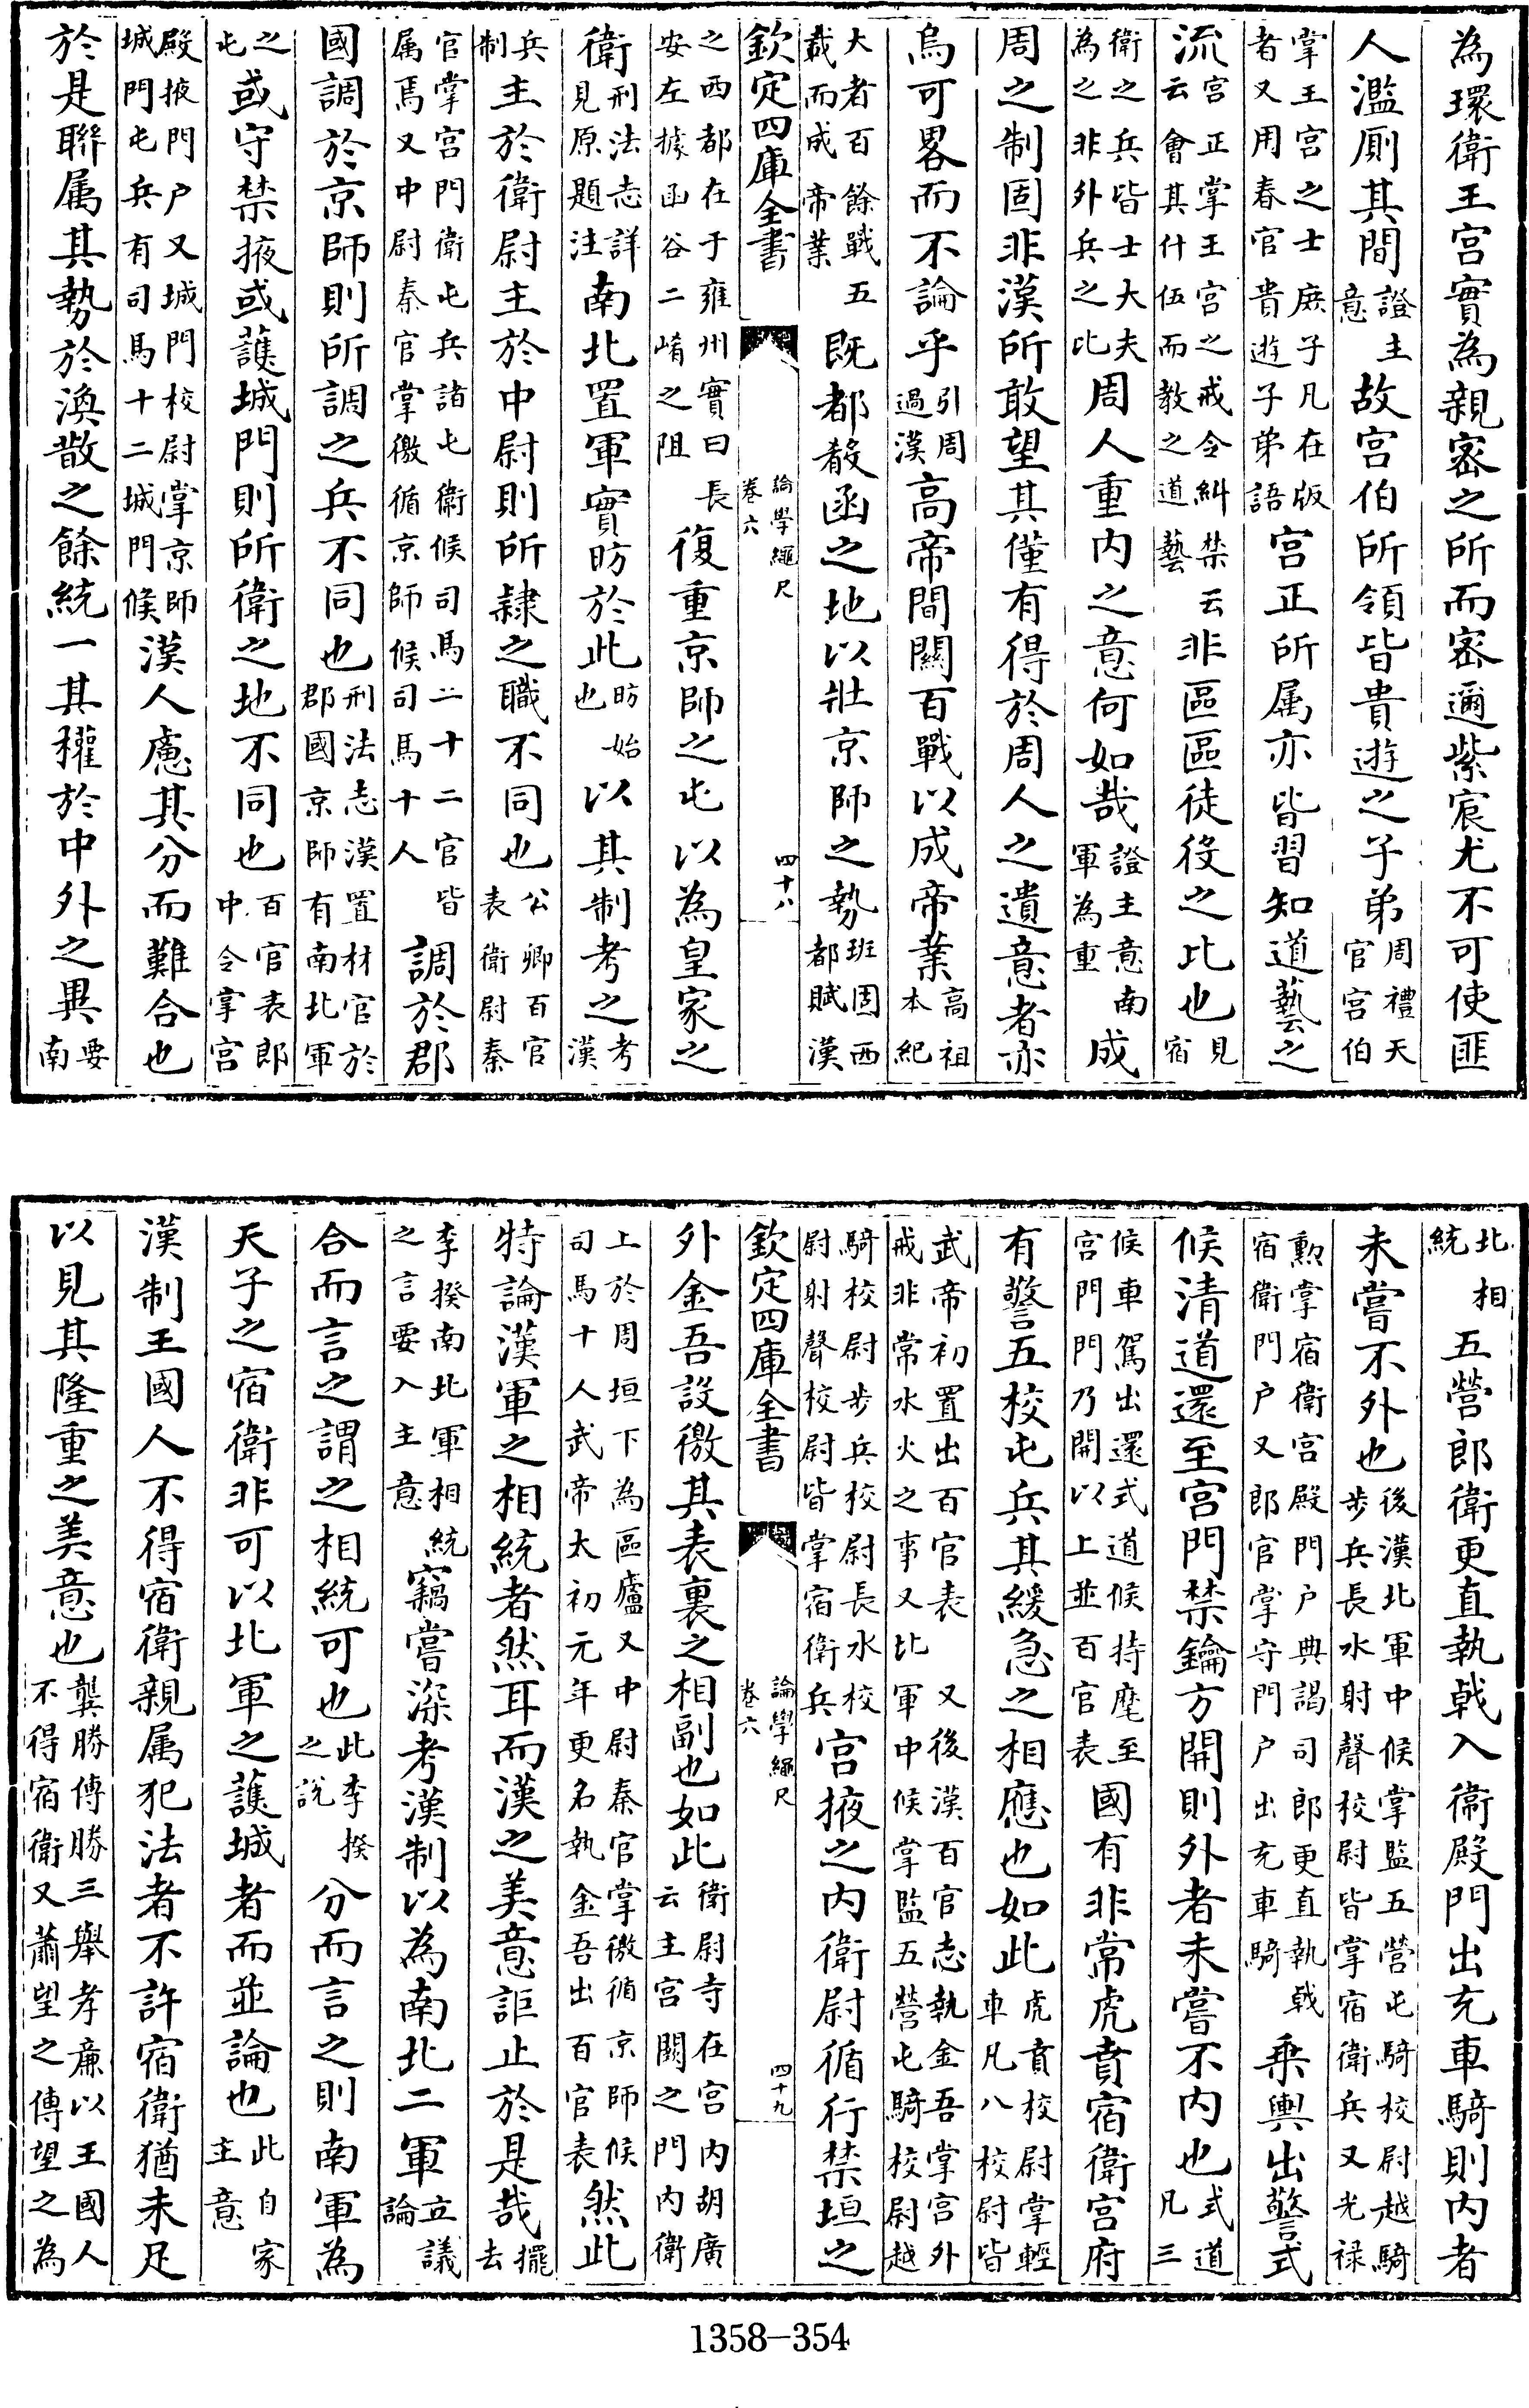 為環衛王宮實為親密之所而密邇紫宸尤不可使匪
人濫厠其間證主意故宮伯所領皆貴遊之子弟周禮天官宮伯
掌王宮之士庶子凡在版者又用春官貴遊子弟語宮正所属亦皆習知道藝之
流宮正掌王宮之戒令糾禁云會其什伍而教之道藝云非區區徒役之比也見宿
衛之兵皆士大夫為之非外兵之比周人重内之意何如哉證主意南軍為重成
周之制固非漢所敢望其僅有得於周人之遺意者亦
烏可畧而不論乎引周過漢高帝間關百戰以成帝業高祖本紀
大者百餘戰五載而成帝業既都殽函之地以壯京師之勢班固西都賦漢
欽定四庫全書 論學繩尺 卷六 四十八
之西都在于雍州實曰長安左據函谷二崤之阻復重京師之屯以為皇家之
衛刑法志詳見原題注南北置軍實昉於此昉始也以其制考之考漢
兵制主於衛尉主於中尉則所隷之職不同也公卿百官表衛尉秦
官掌宮門衛屯兵諸屯衛候司馬二十二官皆属焉又中尉秦官掌徼循京師候司馬十人調於郡
國調於京師則所調之兵不同也刑法志漢置材官於郡國京師有南北軍
之屯或守禁掖或護城門則所衛之地不同也百官表郎中令掌宮
殿掖門户又城門校尉掌京師城門屯兵有司馬十二城門候漢人慮其分而難合也
於是聯属其勢於渙散之餘統一其權於中外之異要南
北相統五營郎衛更直執戟入衛殿門出充車騎則内者
未嘗不外也後漢北軍中候掌監五營屯騎校尉越騎步兵長水射聲校尉皆掌宿衛兵又光禄
勲掌宿衛宮殿門户典謁司郎更直執戟宿衛門户又郎官掌守門户出充車騎乗輿出警式
候清道還至宮門禁鑰方開則外者未嘗不内也式道凡三
候車駕出還式道候持麾至宮門門乃開以上並百官表國有非常虎賁宿衛宮府
有警五校屯兵其緩急之相應也如此虎賁校尉掌輕車凡八校尉皆
武帝初置出百官表又後漢百官志執金吾掌宮外戒非常水火之事又北軍中候掌監五營屯騎校尉越
騎校尉步兵校尉長水校尉射聲校尉皆掌宿衛兵宮掖之内衛尉循行禁垣之
欽定四庫全書 論學繩尺 卷六 四十九
外金吾設徼其表裏之相副也如此衛尉寺在宮内胡廣云主宮闕之門内衛
上於周垣下為區廬又中尉秦官掌徼循京師候司馬十人武帝太初元年更名執金吾出百官表然此
特論漢軍之相統者然耳而漢之美意詎止於是哉擺去
李揆南北軍相統之言要入主意竊嘗深考漢制以為南北二軍立議論
合而言之謂之相統可也此李揆之說分而言之則南軍為
天子之宿衛非可以北軍之護城者而並論也此自家主意
漢制王國人不得宿衛親属犯法者不許宿衛猶未足
以見其隆重之美意也龔勝傳勝三舉孝廉以王國人不得宿衛又蕭望之傳望之為
1358-354